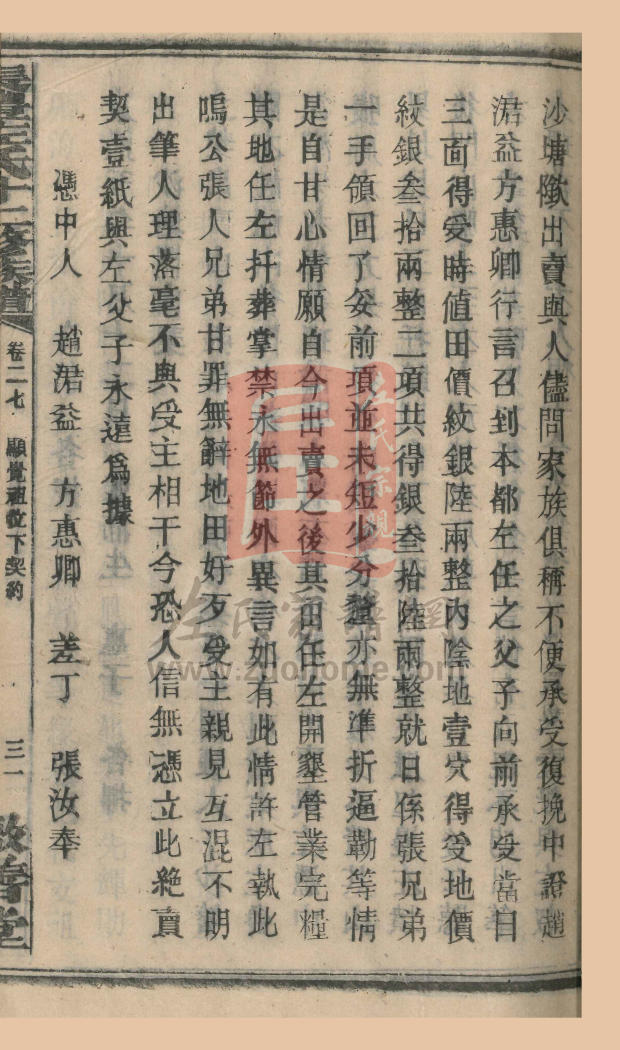 沙塘歘出賣與人儘問家族俱稱不便承受復挽中證趙
涒益方惠卿行言召到本都左任之父子向前承受當日
三面得受時值田價紋銀陸兩整內陰地壹穴得受地價
紋銀叁拾兩整二項共得銀叁拾陸兩整就日係張兄弟
一手領回了妥前項並未短少分釐亦無準折逼勒等情
是自甘心情願自今出賣之後其田任左開墾管業完糧
其地任左扦葬掌禁永無節外異言如有此情許左執此
鳴公張人兄弟甘罪無辭地田好歹受主親見互混不明
出筆人理落毫不與受主相干今恐人信無憑立此絶賣
契壹紙與左父子永遠爲據
憑中人 趙涒益 方惠卿 差丁 張汝奉
左氏十二修族譜 卷二七 顯覺祖位下契約 三一 敦善堂
左氏宗親
www.zuohome.com